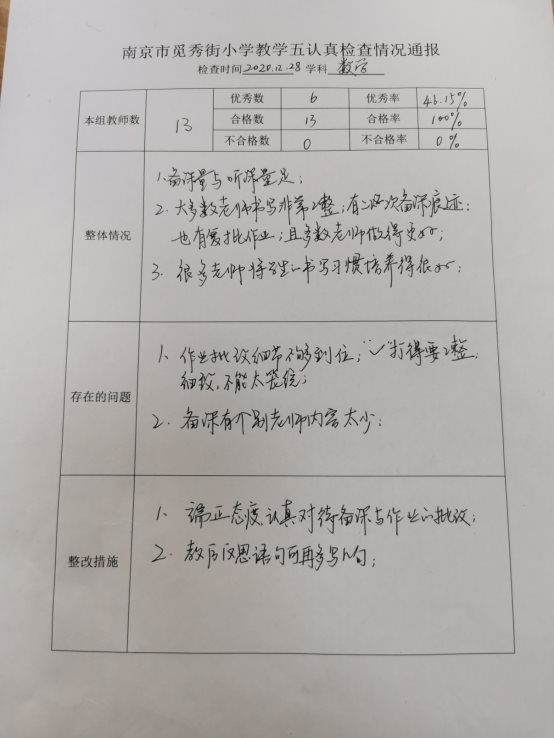 南京市觅秀街小学教学五认真检查情况通报
检查时间2020.12.28学科 数学
本组教师数 13 优秀数 6 优秀率 46.15%
合格数 13 合格率 100%
不合格数 0 不合格率 0%
整体情况
1.备课量与听课量足;
2.大多数老师书写非常工整;有二次备课痕迹;
也有复批作业;且多数老师做得更好;
3.很多老师将学生的书写习惯培养得很好;
存在的问题
1、作业批改细节不够到位;“✓”打得要工整,
细致,不能太笼统;
2.备课有个别老师内容太少;
整改措施
1、端正态度,认真对待备课与作业的批改;
2.教后反思语句可再多写几句;